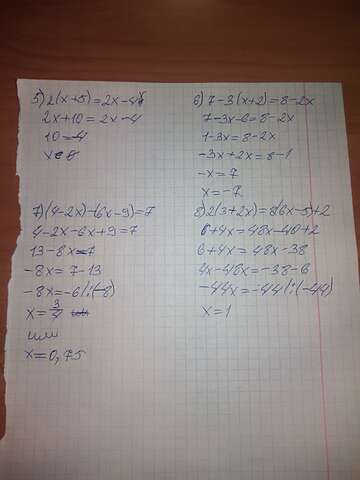 5) 2(x+5)=2x-4
2x+10=2x-4
10=-4
x∈∅
6) 7-3(x+2)=8-2x
7-3x-6=8-2x
1-3x=8-2x
-3x+2x=8-1
-x=7
x=-7.
7) (4-2x)-(6x-9)=7
4-2x-6x+9=7
13-8x=7
-8x=7-13
-8x=-6 |:(-8)
x=3/4
или
x=0,75
8) 2(3+2x)=8(6x-5)+2
6+4x=48x-40+2
6+4x=48x-38
4x-48x=-38-6
-44x=-44 |:(-44)
x=1